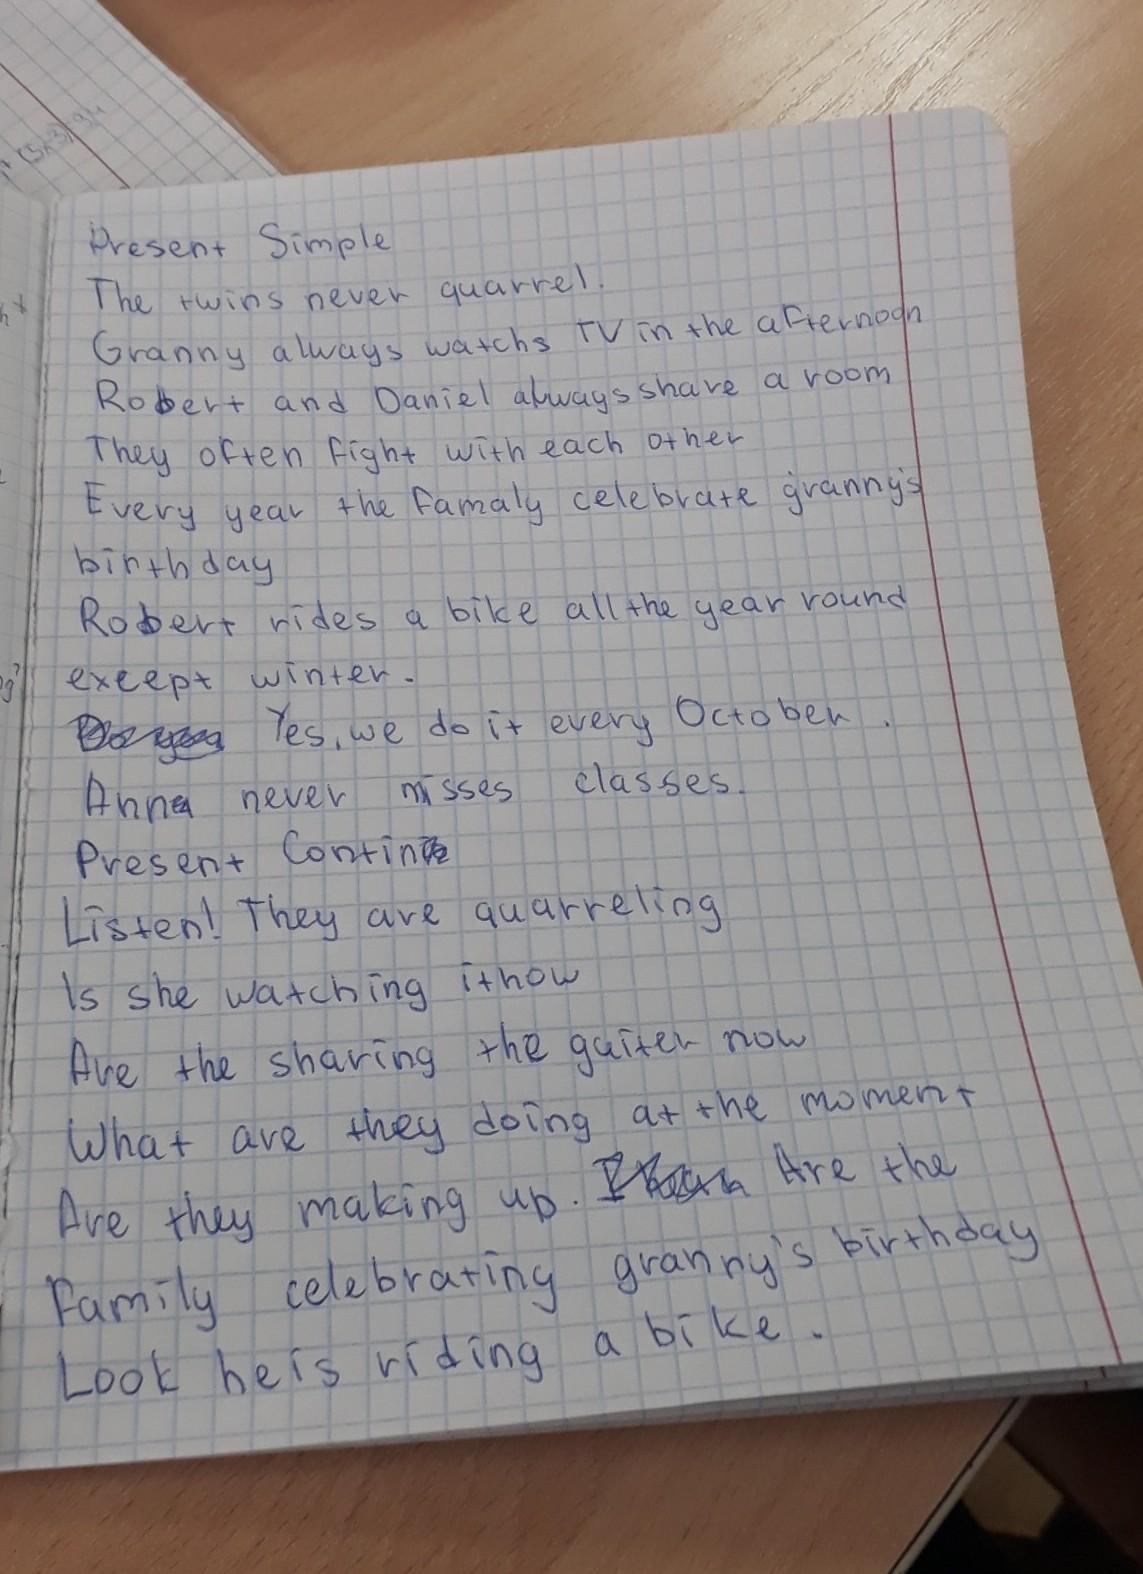 Present Simple
The twins never quarrel.
Granny always watchs TV in the afternoon
Robert and Daniel always share a room
They often fight with each other
Every year the famaly celebrate granny's
birthday
Robert rides a bike all the year round
except winter.
Yes, we do it every October.
Anna never misses classes.
Present Contin
Listen! They are quarreling
Is she watching it now
Are the sharing the guiter now
What are they doing at the moment
Are they making up. Are the
family celebrating granny's birthday
Look he is riding a bike.